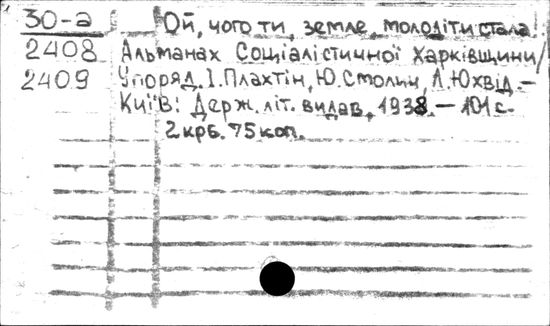 30-а Ой, чого ти, земле, молодіти стала!
2408 Альманах Соціалістичної Харківщини/
2409 Упоряд. І. Плахтін, Ю. Столич, Л. Юхвід. –
Київ: Держ. літ. видав., 1938. – 101 с.
2 крб. 75 коп.